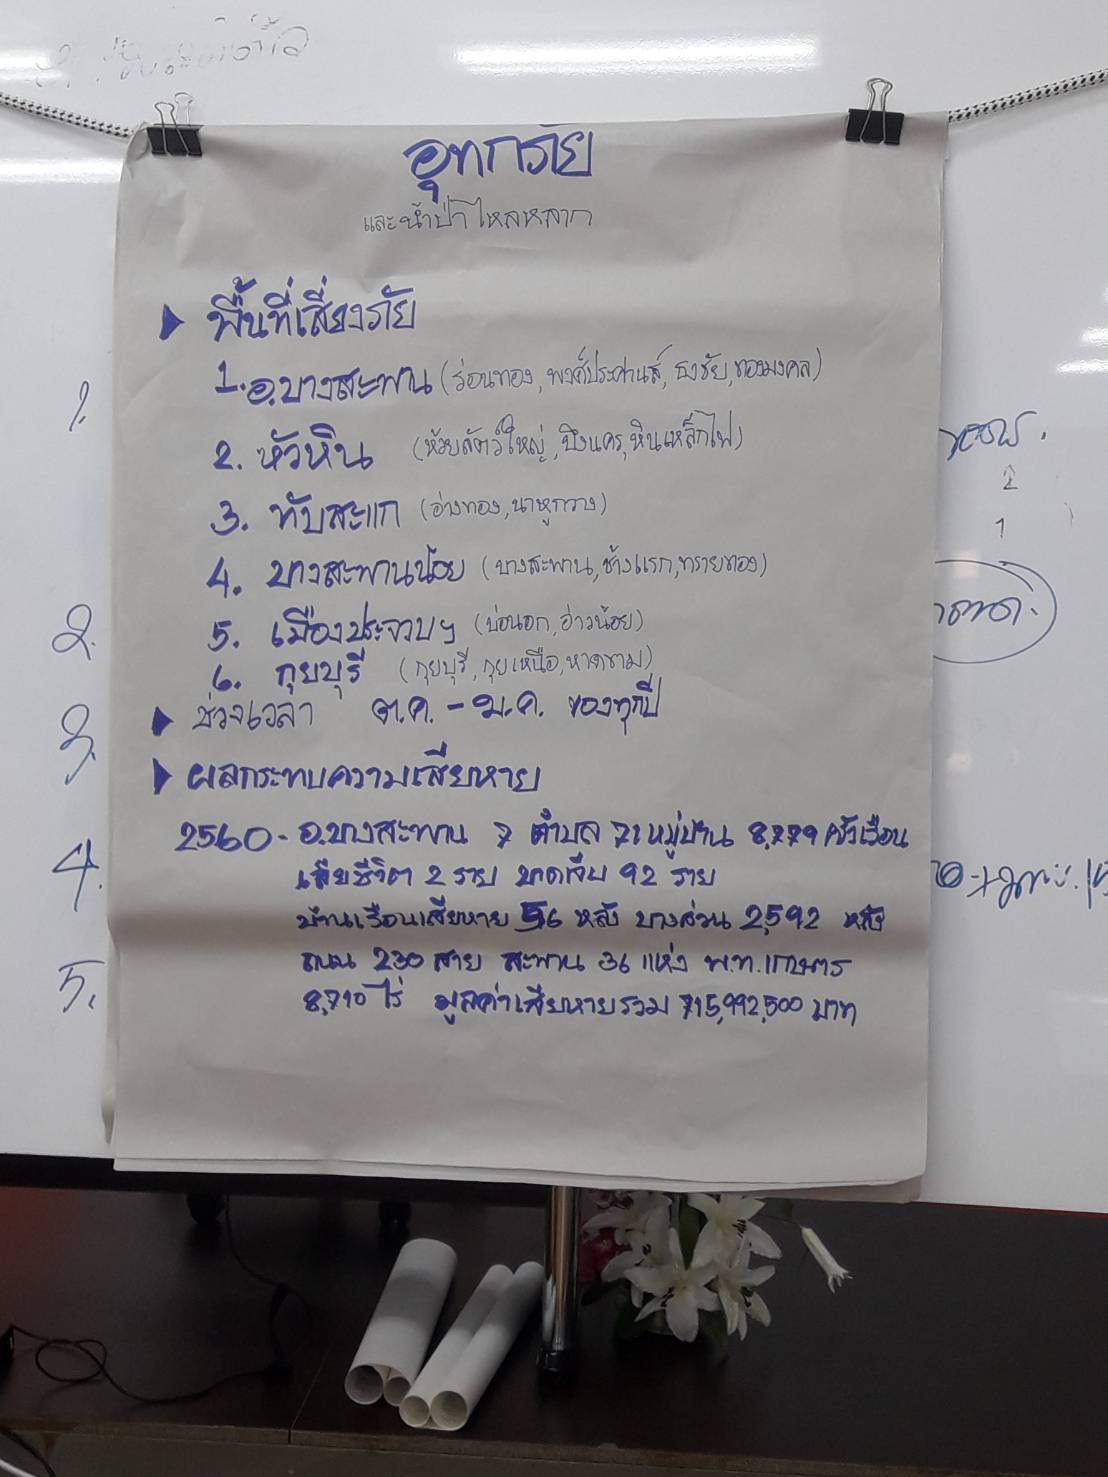 อุทกภัย
และน้ำป่าไหลหลาก
พื้นที่เสี่ยงภัย
1. อ.บางสะพาน (ร่อนทอง, พงศ์ประศาสน์, ธงชัย, ทองมงคล)
2. หัวหิน (ห้วยสัตว์ใหญ่, บึงนคร, หินเหล็กไฟ)
3. ทับสะแก (อ่างทอง, นาหูกวาง)
4. บางสะพานน้อย (บางสะพาน, ช้างแรก, ทรายทอง)
5. เมืองประจวบฯ (บ่อนอก, อ่าวน้อย)
6. กุยบุรี (กุยบุรี, กุยเหนือ, หาดขาม)
ช่วงเวลา ต.ค. - ม.ค. ของทุกปี
ผลกระทบความเสียหาย
2560 - อ.บางสะพาน 7 ตำบล 71 หมู่บ้าน 8,779 ครัวเรือน
เสียชีวิต 2 ราย บาดเจ็บ 92 ราย
บ้านเรือนเสียหาย 56 หลัง บางส่วน 2,592 หลัง
ถนน 230 สาย สะพาน 36 แห่ง พ.ท.เกษตร
8,710 ไร่ มูลค่าเสียหายรวม 715,992,500 บาท
1.
2.
3.
4.
5.
2
1